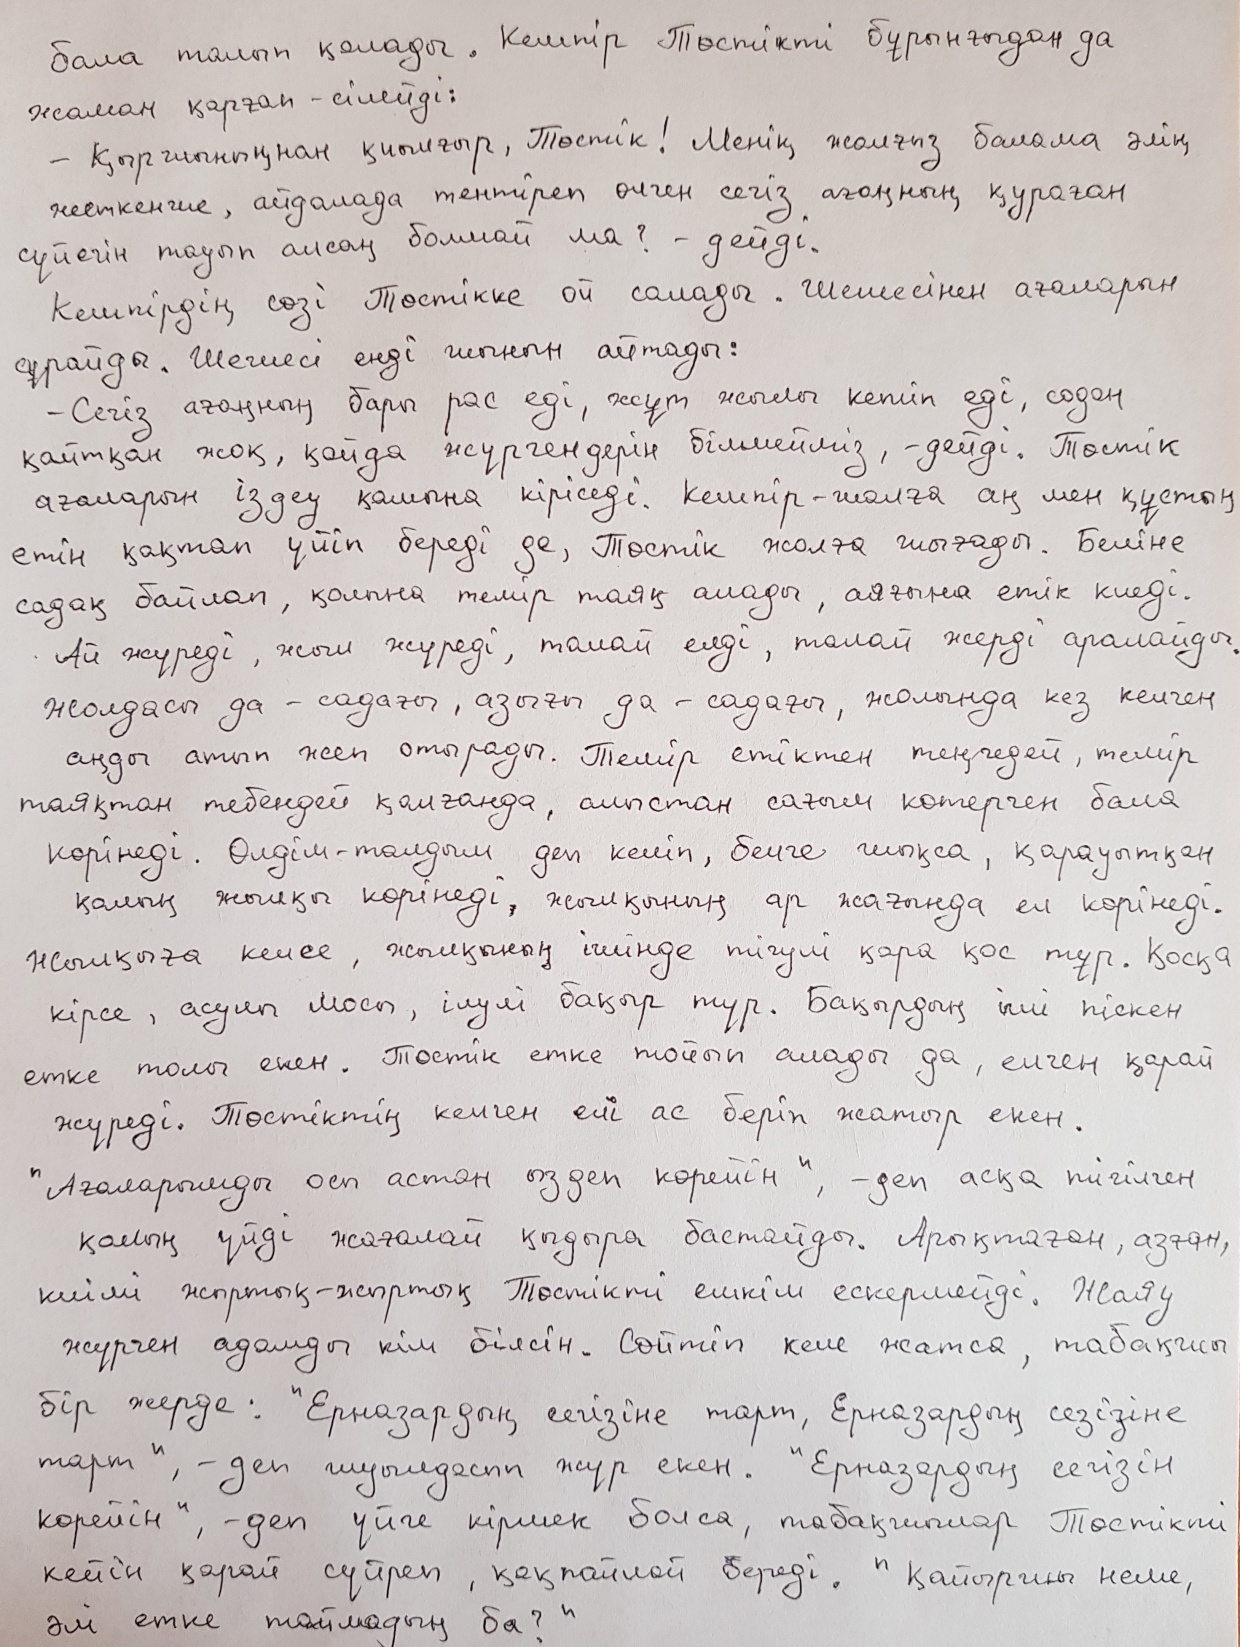 бала талып қалады. Кемпір Төстікті бұрынғыдан да
жаман қарғап-сілейді:
– Қыршыныңнан қиылғыр, Төстік! Менің жалғыз балама әлің
жеткенше, айдалада тентіреп өлген сегіз ағаңның қураған
сүйегін тауып алсаң болмай ма? – дейді.
Кемпірдің сөзі Төстікке ой салады. Шешесінен ағаларын
сұрайды. Шешесі енді шынын айтады:
– Сегіз ағаңның бары рас еді, жұт жылы кетіп еді, содан
қайтқан жоқ, қайда жүргендерін білмейміз, – дейді. Төстік
ағаларын іздеу қамына кіріседі. Кемпір-шалға аң мен құстың
етін қақтап үйіп береді де, Төстік жолға шығады. Беліне
садақ байлап, қолына темір таяқ алады, аяғына етік киеді.
Ай жүреді, жыл жүреді, талай елді, талай жерді аралайды.
Жолдасы да – садағы, азығы да – садағы, жолында кез келген
аңды атып жеп отырады. Темір етіктен теңгедей, темір
таяқтан тебендей қалғанда, алыстан сағым көтерген бала
көрінеді. Өлдім-талдым деп келіп, белге шықса, қарауытқан
қалың жылқы көрінеді, жылқының ар жағында ел көрінеді.
Жылқыға келсе, жылқының ішінде тігулі қара қос тұр. Қосқа
кірсе, асулы мосы, ілулі бақыр тұр. Бақырдың іші піскен
етке толы екен. Төстік етке тойып алады да, елген қарай
жүреді. Төстіктің келген елі ас беріп жатыр екен.
"Ағаларымды осы астан іздеп көрейін", – деп асқа тігілген
қалың үйді жағалай қыдыра бастайды. Арықтаған, азған,
киімі жыртық-жыртық Төстікті ешкім ескермейді. Жаяу
жүрген адамды кім білсін. Сөйтіп келе жатса, табақшы
бір жерде: "Ерназардың сегізіне тарт, Ерназардың сезізіне
тарт", – деп шуылдасып жүр екен. "Ерназардың сегізін
көрейін", – деп үйге кірмек болса, табақшылар Төстікті
кейін қарай сүйреп, қақпайлай береді. "Қайыршы неме,
әлі етке тоймадың ба?"